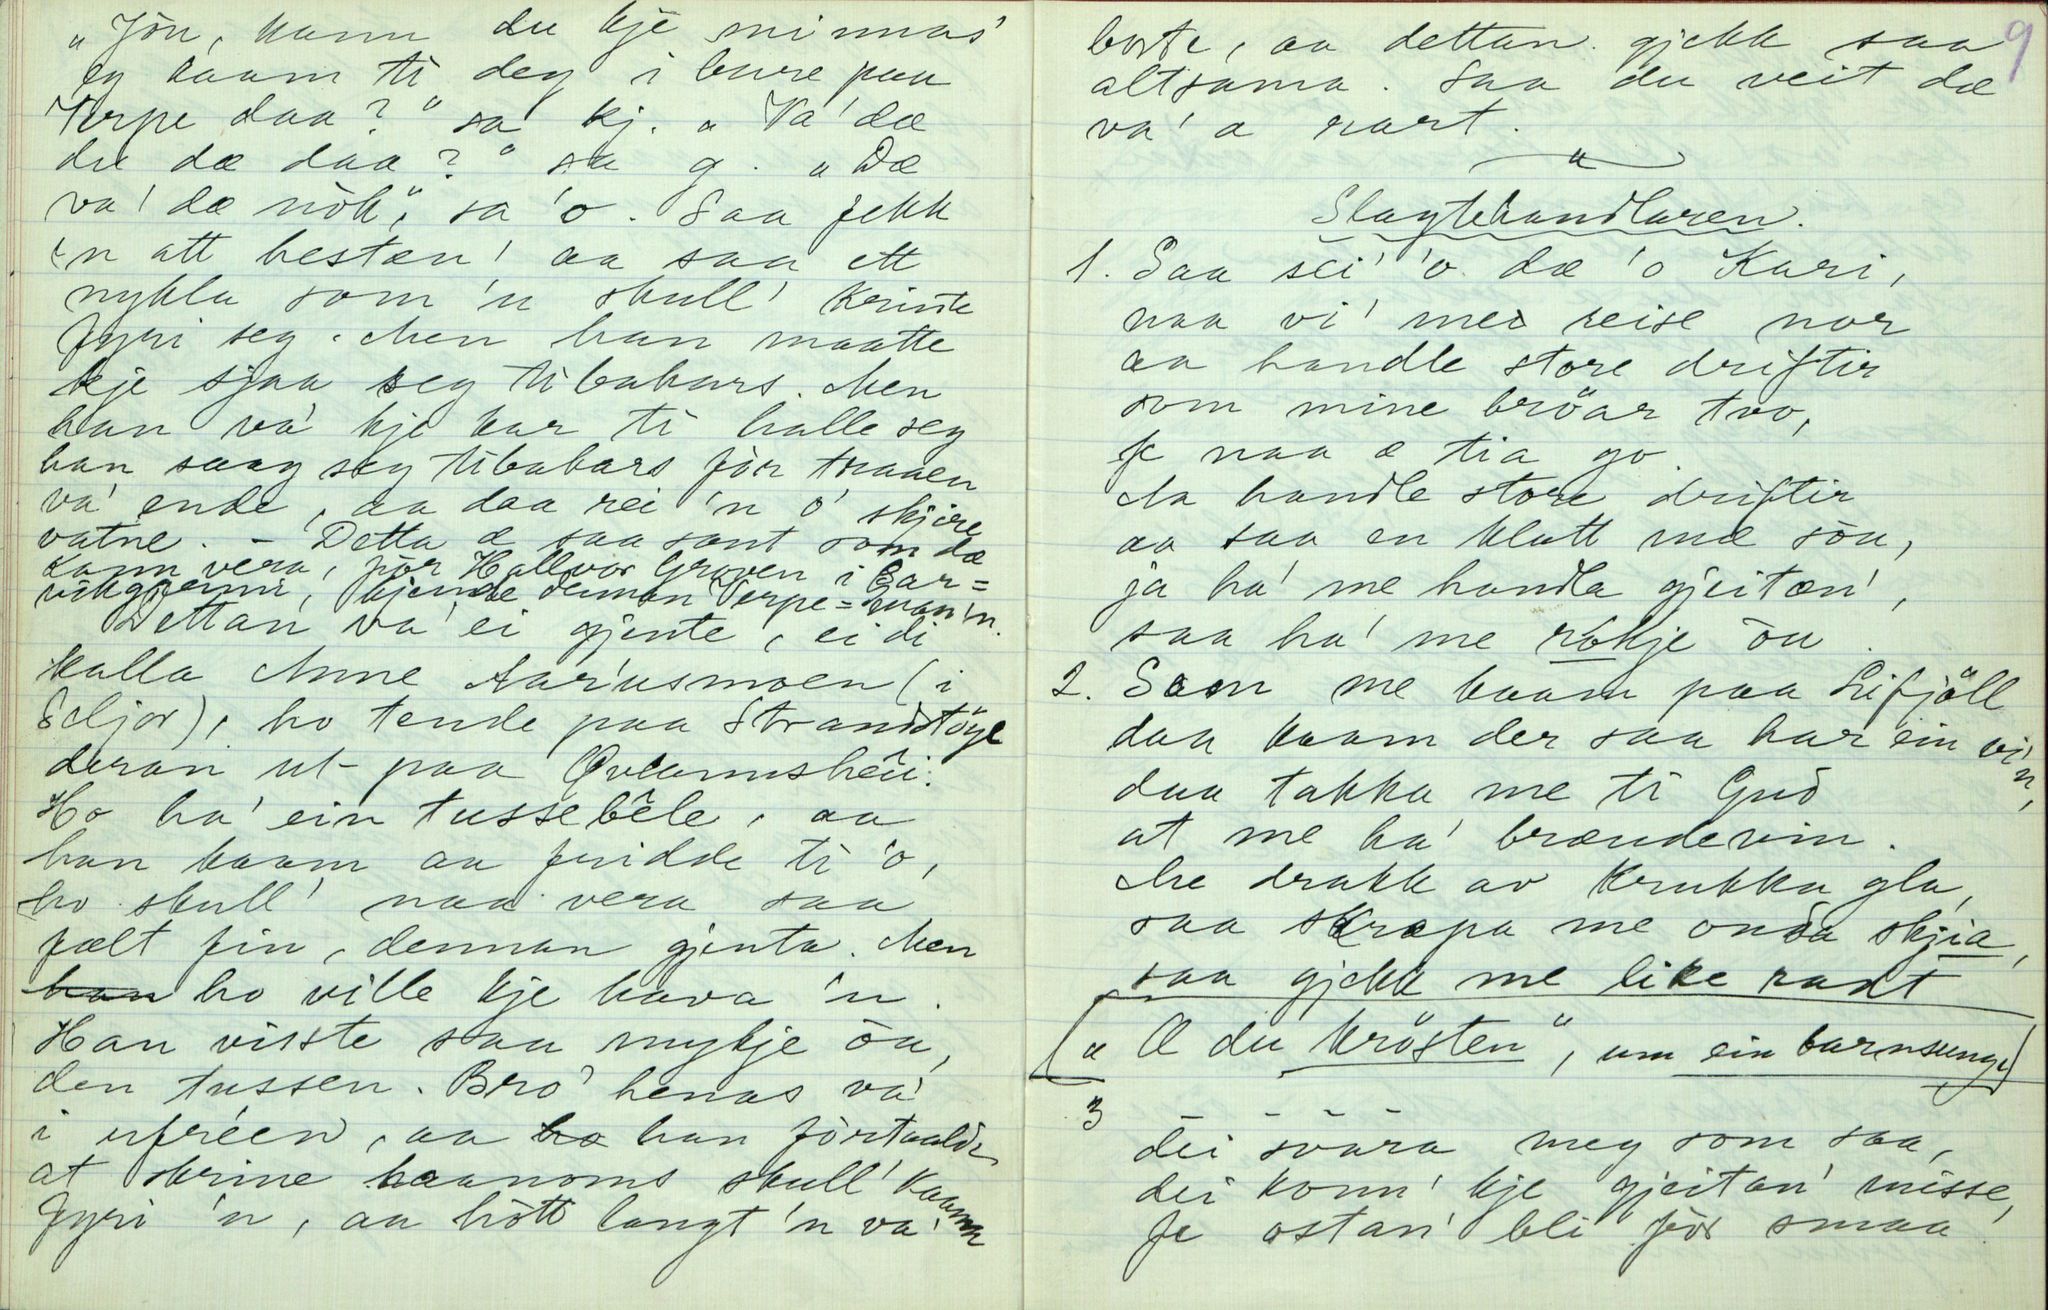 „Jön, kann du kje minnas'
eg kaam ti deg i bure paa
Terpe daa?" sa' kj. „Va' dæ
du dæ daa?" sa g. „Dæ
va' dæ nòk", sa 'o. Saa fekk
'n att hesten' aa saa ett
nykla som 'n skull' krinte
fyri seg. Men han maatte
kje sjaa seg tibakars. Men
han va' kje kar ti halle seg
han saag seg tibakars för traaen
va' ende, aa daa rei 'n o' skjire
vatne. - Detta æ saa sant som dæ
kann vera, för Hallvor Groven i Bar=
vikgrenni, kjende dennan Terpe=mann'n.
Dettan va' ei gjente, ei di
kalla Anne Aar'usmoen (i
Seljor), ho tende paa Strandstöyl
deran ut paa Qvammshei.
Ho ha' ein tussebêle, aa
han kaam aa fridde ti 'o,
ho skull' naa vera saa
fælt fin, dennan gjenta. Men
ho ville kje hava 'n.
Han visste saa mykje òu,
den tussen. Bro' henas va'
i ufréen, aa han förtaalde
at skrine haanoms skull' kaamm
fyri 'n, aa hött langt 'n va'
9
borte, aa dettan gjekk saa
altsama. Saa du veit dæ
va' a rart.
"
Slagtehandlaren.
1. Saa sei' 'o dæ 'o Kari,
naa vi' me reise nor
aa handle store driftir
som mine bröar tvo,
fe naa æ tia go.
Aa handle store driftir
aa saa en klatt mæ sòu,
ja ha' me handla gjeitæn',
saa ha' me rökje òu.
2. Saan me kaam paa Lifjöll
daa kaam der saa har ein vi'n,
daa takka me ti Gud
at me ha' brændevin.
Me drakk av krukka gla,
saa skrapa me onda skjia,
saa gjekk me like rant
„Æ du krösten", um ein barnsunge
3
dei svara meg som saa,
dei konn' kje gjeitan' misse,
fe ostan' bli för smaa